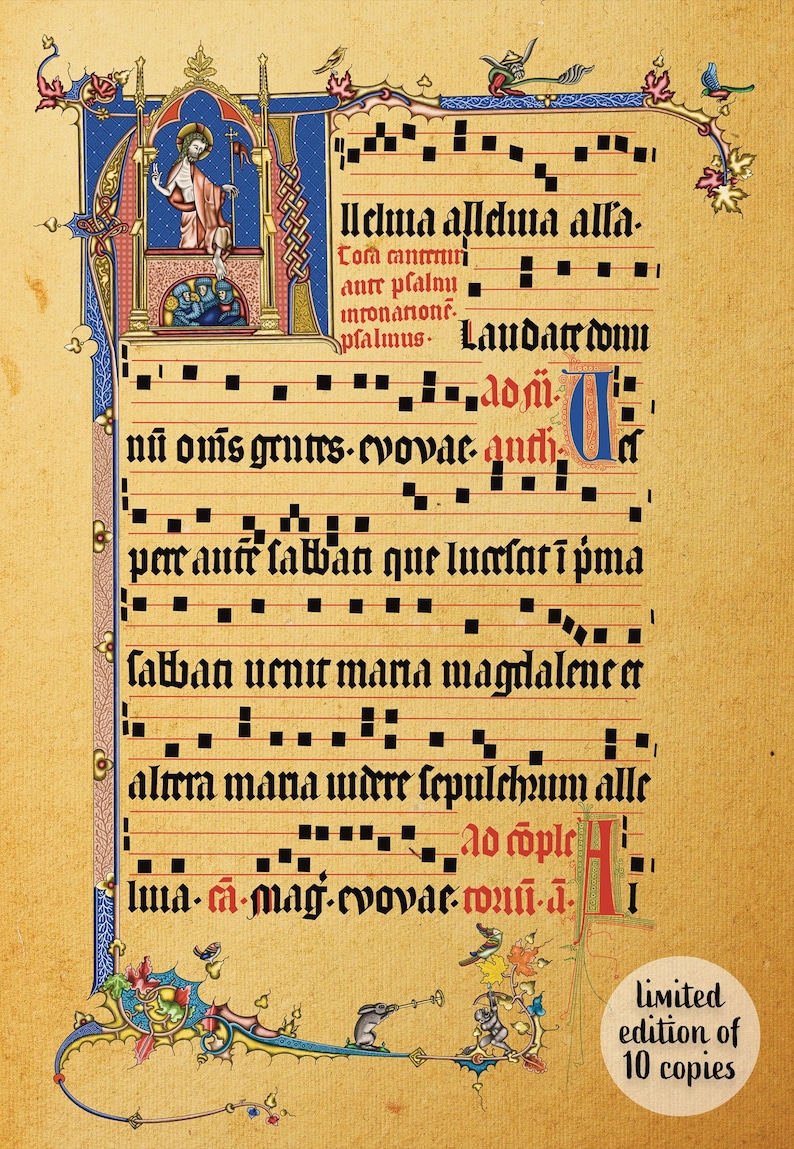 Alleluia alleluia alľa·
Tota cantetur
ante psalmū
intonationē·
psalmus·
Laudate domi
nū om̄s gentes· evovae· ad m̄· anth̄· Ves
pere autē sabbati que lucescit ī p̄ma
sabbati uenit maria magdalene et
altera maria uidere sepulchrum alle
luia· cā· mag̓· evovae· ad cōple
toriū· ā· Al
limited
edition of
10 copies